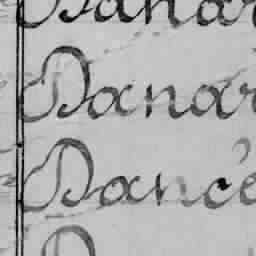 Danar
Danar
Dance